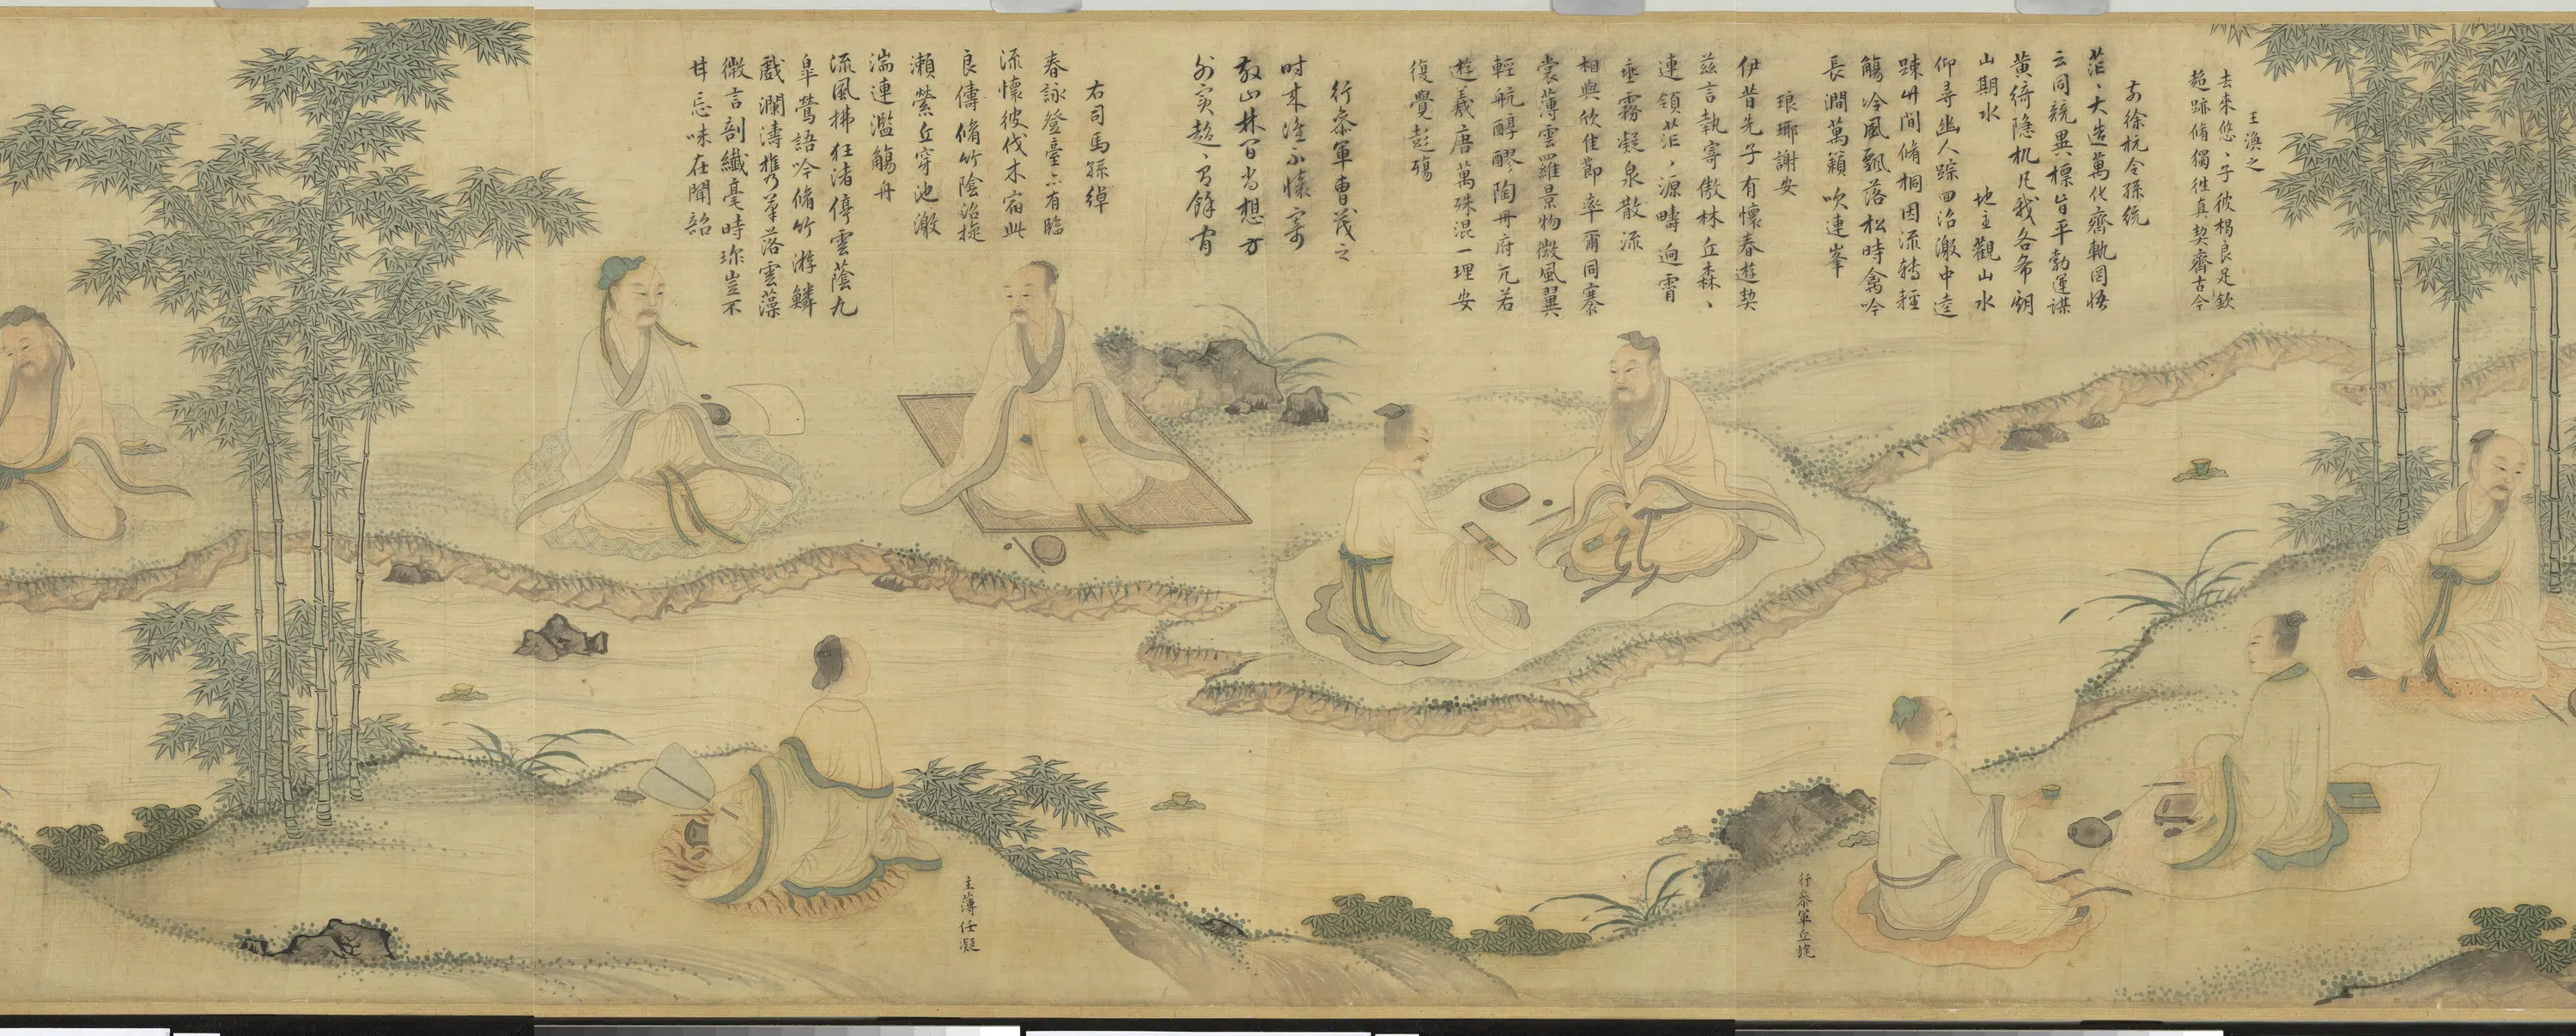 王渙之
去來悠、子彼褐良足欽
超跡脩獨往真契齊古今
前徐杭令孫統
茫、大造萬化齊軌罔悟
玄同競異標旨平勃運謀
黃綺隐机凡我各希期
山期水
地主觀山水
仰尋幽人踪回沼激中逵
踈竹間脩桐因流轉輕
觴冷風飄落松時禽吟
長澗萬籟吹連峯
琅瑘謝安
伊昔先子有懷春遊契
茲言執寄傲林丘森、
連領茫、源疇迥霄
垂霧凝泉散流
相與欣佳節率爾同褰
裳薄雲羅景物微風翼
輕航醇醪陶丹府兀若
遊羲唐萬殊混一理安
復覺彭殤
行叅軍曹茂之
時來誰不懷寄
散山林間尚想方
外賓超、有餘閒
右司馬孫綽
春詠登臺亦有臨
流懷彼伐木宿此
良儔脩竹陰沼旋
瀨縈丘穿池激
湍連濫觴舟
流風拂枉渚停雲蔭九
皐鶯語吟脩竹游鱗
戲瀾濤攜筆落雲藻
微言剖纖毫時珎豈不
甘忘味在聞韶
行叅軍丘旄
主薄任凝